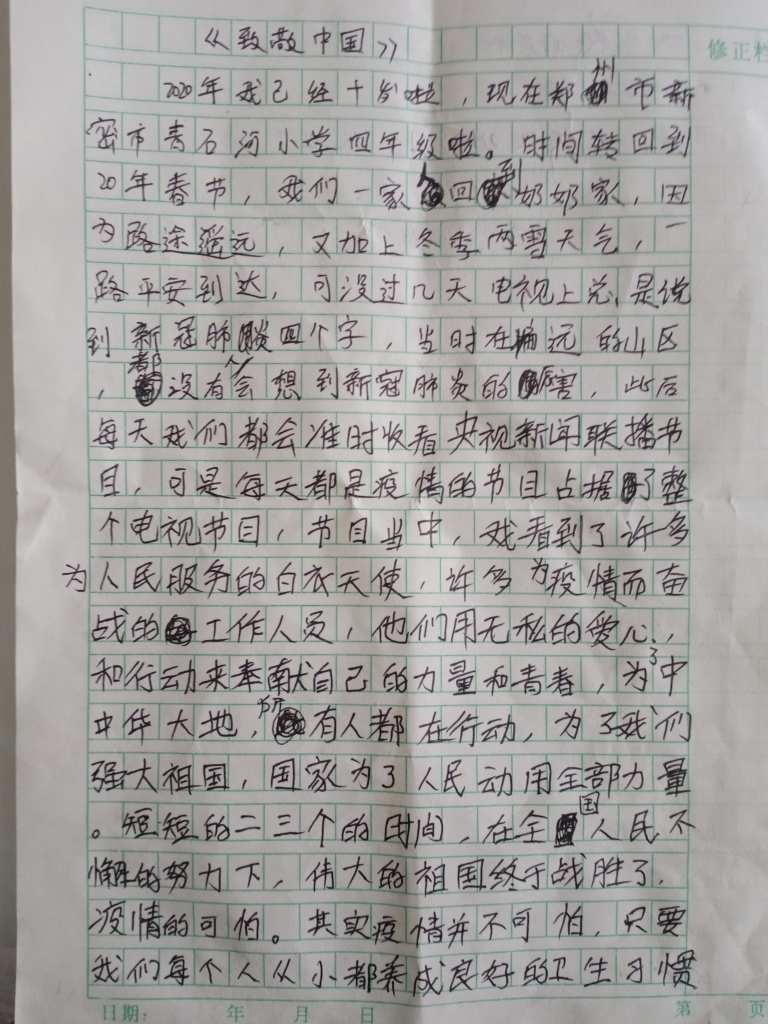 《致敬中国》
修正栏
2020年我已经十岁啦，现在郑州市新
密市青石河小学四年级啦。时间转回到
20年春节，我们一家回到奶奶家，因
为路途遥远，又加上冬季两雪天气，一
路平安到达，可没过几天电视上总是说
到新冠肺炎四个字，当时在偏远的山区
，都没有人会想到新冠肺炎的厉害，此后
每天我们都会准时收看央视新闻联播节
目，可是每天都是疫情的节目占据了整
个电视节目，节目当中，我看到了许多
为人民服务的白衣天使，许多为疫情而奋
战的工作人员，他们用无私的爱心，
和行动来奉献自己的力量和青春，为了中
中华大地，所有人都在行动，为了我们
强大祖国，国家为了人民动用全部力量
。短短的二三个的时间，在全国人民不
懈的努力下，伟大的祖国终于战胜了，
疫情的可怕。其实疫情并不可怕，只要
我们每个人从小都养成良好的卫生习惯
日期： 年 月 日 第 页